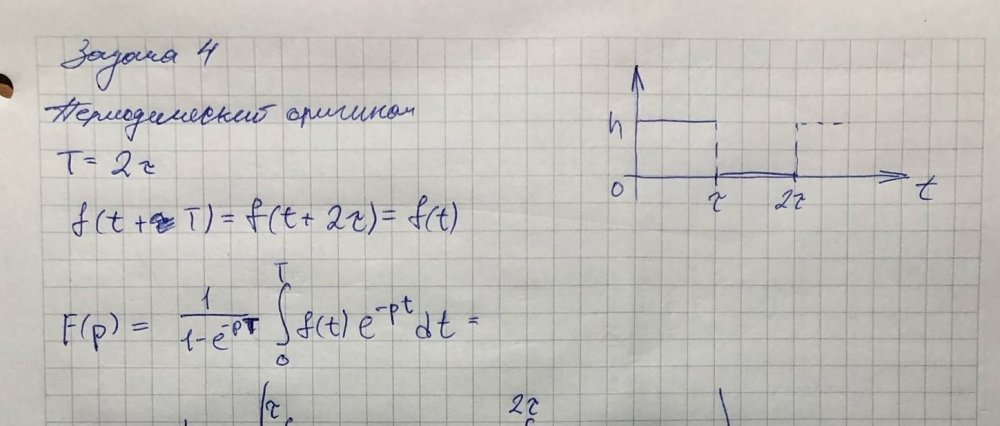 Задача 4
Периодический оригинал
T = 2τ
f(t + T) = f(t + 2τ) = f(t)
F(p) = 1/(1-e^{-pT}) ∫_0^T f(t) e^{-pt} dt =
h
0 τ 2τ t
τ 2τ